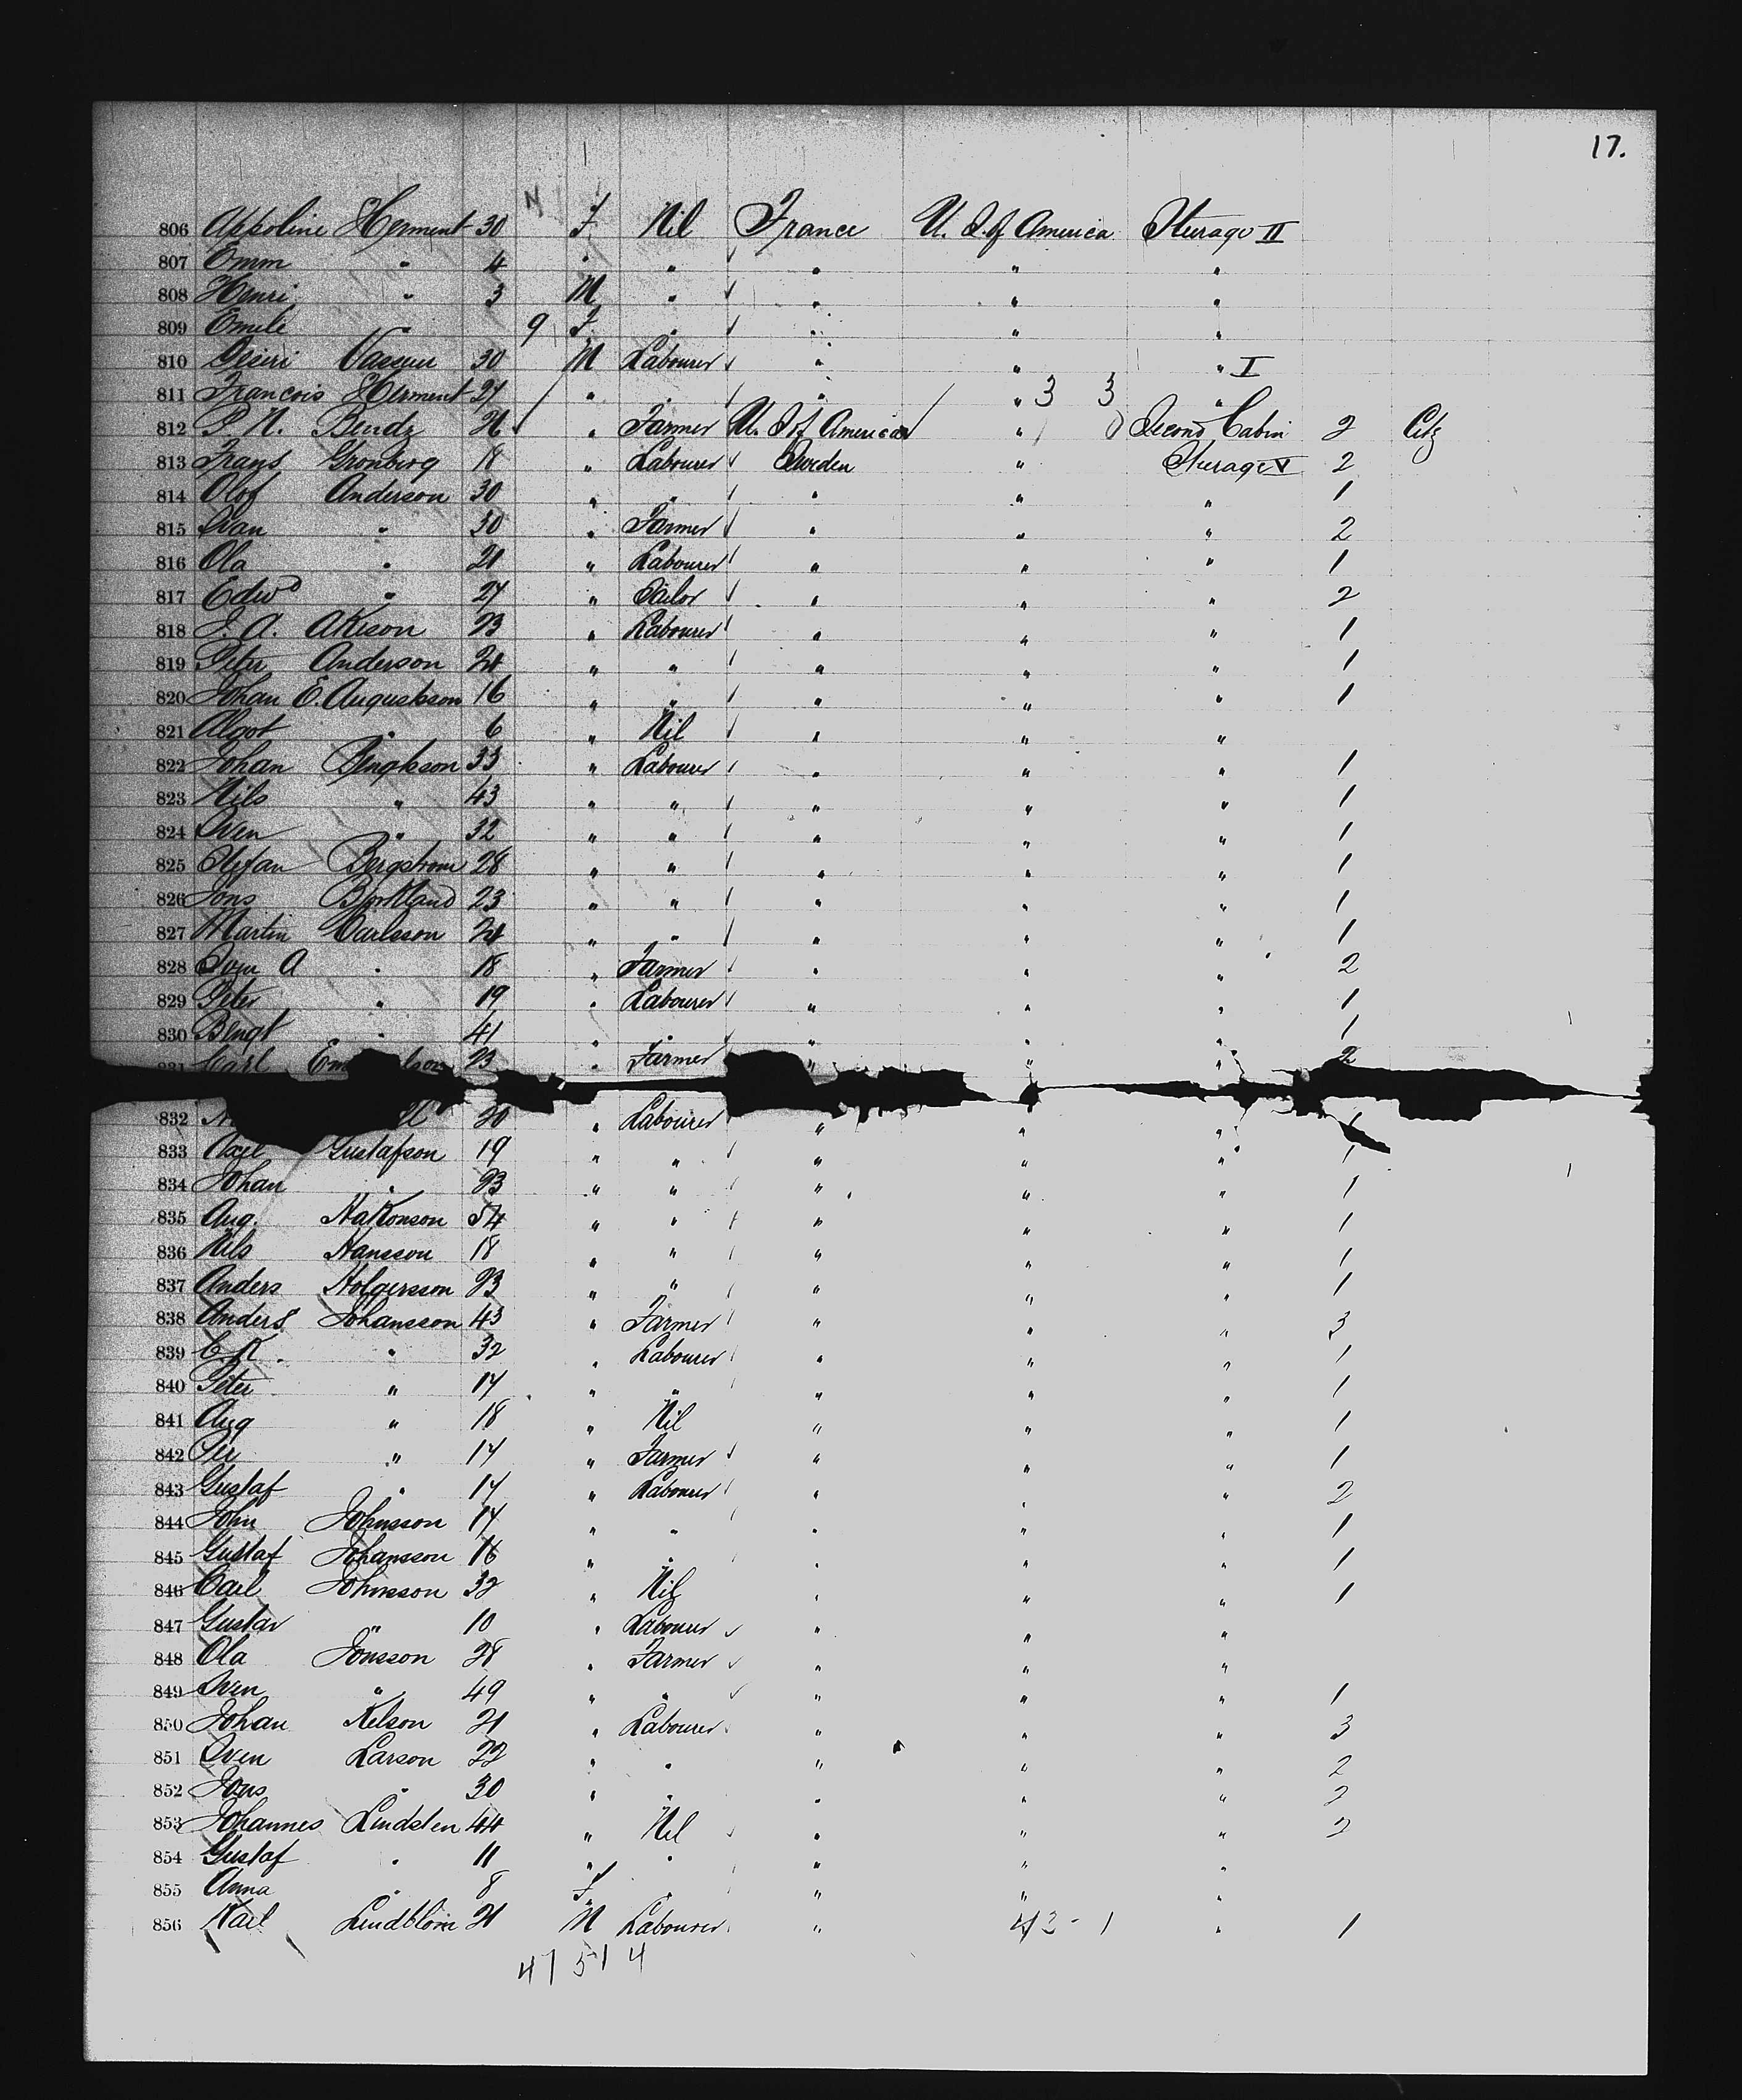 17.
806 Appoline Herment 30 F Nil France U. S. of America Sturage II
807 Emm " 4 " " " " "
808 Henri " 3 M " " " "
809 Emile " 9 F " " " "
810 Desiri 30 M Labourer " " " I
811 Francois Herment 27 " " " " 3 3 "
812 P N. Bendz " Farmer U. S of America " Second Cabin 2 Citz
813 Frans Gronberg 18 " Labourer Sweden " Sturage V 2
814 Olof Anderson 30 " " " " " 1
815 Svan " 30 " Farmer " " " 2
816 Ola " 21 " Labourer " " " 1
817 Edwd " 27 " Sailor " " " 2
818 J. A. Akeson 23 " Labourer " " " 1
819 Peter Anderson 24 " " " " " 1
820 Johan E. Augustsson 16 " " " " " 1
821 Algot " 6 " Nil " " "
822 Johan Bengtsson 33 " Labourer " " " 1
823 Nils " 43 " " " " " 1
824 Sven " 32 " " " " " 1
825 Stefan Bergstrom 28 " " " " " 1
826 Jons Bjorkland 23 " " " " " 1
827 Martin Carlsson 24 " " " " " 1
828 Sven A " 18 " Farmer " " " 2
829 Peter " 19 " Labourer " " " 1
830 Bengt " 41 " " " " " 1
831 Carl 23 " Farmer " " " 2
832 20 " Labourer " " " 1
833 Axel Gustafson 19 " " " " " 1
834 Johan " 23 " " " " " 1
835 Aug. Hakonson 54 " " " " " 1
836 Nils Hansson 18 " " " " " 1
837 Anders Holgersson 23 " " " " " 1
838 Anders Johansson 43 " Farmer " " " 3
839 C. K. " 32 " Labourer " " " 1
840 Peter " 17 " " " " " 1
841 Aug " 18 " Nil " " " 1
842 Per " 17 " Farmer " " " 1
843 Gustaf " 17 " Labourer " " " 2
844 John Johnsson 17 " " " " " 1
845 Gustaf Johansson 16 " " " " " 1
846 Carl Johnsson 32 " Nil " " " 1
847 Gustav " 10 " Labourer " " "
848 Ola Jonsson 28 " Farmer " " "
849 Sven " 49 " " " " " 1
850 Johan Kelson 21 " Labourer " " " 3
851 Sven Larson 22 " " " " " 2
852 Jons " 30 " " " " " 2
853 Johannes Lindsten 44 " Nil " " " 2
854 Gustaf " 11 " " " " "
855 Anna " 8 F " " " "
856 Karl Lindblom 21 M Labourer " 43 - 1 " 1
47 51 4